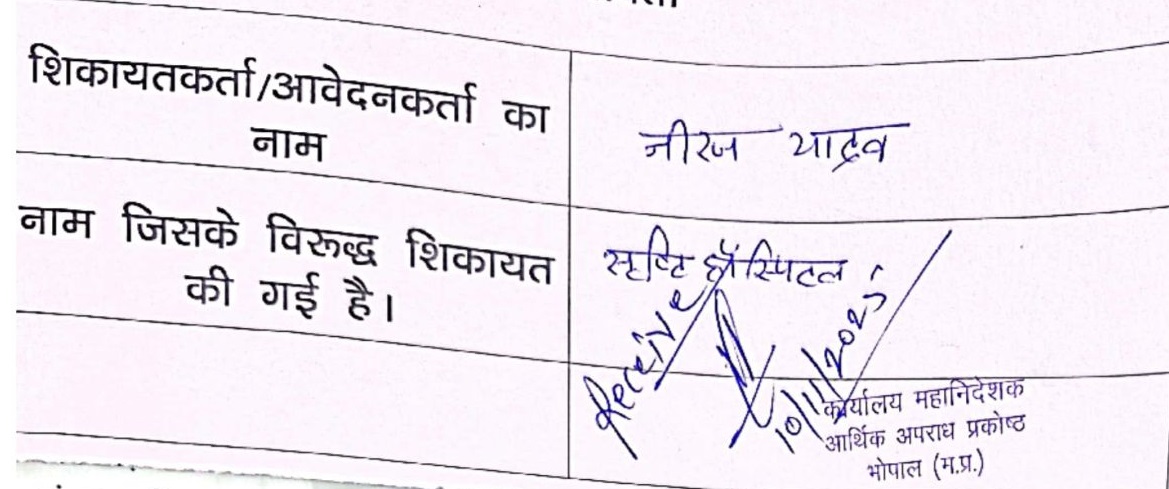 शिकायतकर्ता/आवेदनकर्ता का
नाम
नीरज यादव
नाम जिसके विरूद्ध शिकायत
की गई है।
सृष्टि हॉस्पिटल
Receive
10/11/2025
कार्यालय महानिदेशक
आर्थिक अपराध प्रकोष्ठ
भोपाल (म.प्र.)